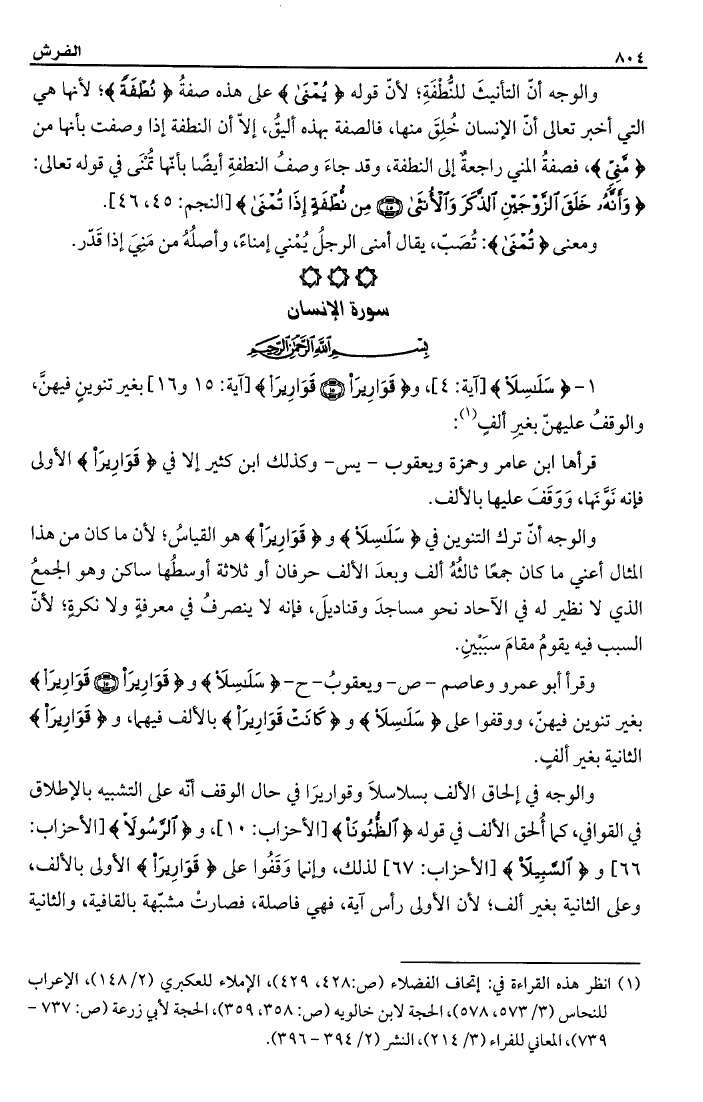 ٨٠٤
الفرش
والوجه أنّ التأنيثَ للنُّطْفَةِ؛ لأنّ قوله ﴿ يُمْنَىٰ ﴾ على هذه صفةُ ﴿ نُطْفَةً ﴾؛ لأنها هي
التي أخبر تعالى أنّ الإنسان خُلِقَ منها، فالصفة بهذه أليقُ، إلاّ أن النطفة إذا وصفت بأنها من
﴿ مَّنِيٍّ ﴾، فصفةُ المني راجعةٌ إلى النطفة، وقد جاءَ وصفُ النطفةِ أيضًا بأنّها تُمْنَى في قوله تعالى:
﴿ وَأَنَّهُۥ خَلَقَ ٱلزَّوْجَيْنِ ٱلذَّكَرَ وَٱلْأُنثَىٰ ۝٤٥ مِن نُّطْفَةٍ إِذَا تُمْنَىٰ ﴾ [النجم: ٤٥، ٤٦].
ومعنى ﴿ تُمْنَىٰ ﴾: تُصَبّ، يقال أمنى الرجلُ يُمْني إمناءً، وأصلُهُ من مَنِيَ إذا قَدّر.
سورة الإنسان
بِسْمِ ٱللَّهِ ٱلرَّحْمَٰنِ ٱلرَّحِيمِ
١- ﴿ سَلَٰسِلَا۟ ﴾ [آية: ٤]، و﴿ قَوَارِيرَا۟ ۝١٥ قَوَارِيرَا۟ ﴾ [آية: ١٥ و١٦] بغير تنوينٍ فيهنَّ،
والوقفُ عليهنّ بغيرِ ألفٍ(١):
قرأها ابن عامر وحمزة ويعقوب – يس– وكذلك ابن كثير إلا في ﴿ قَوَارِيرَا۟ ﴾ الأولى
فإنه نَوَّنَها، وَوَقَفَ عليها بالألف.
والوجه أنّ ترك التنوين في ﴿ سَلَٰسِلَا۟ ﴾ و ﴿ قَوَارِيرَا۟ ﴾ هو القياسُ؛ لأن ما كان من هذا
المثال أعني ما كان جمعًا ثالثُهُ ألف وبعدَ الألف حرفان أو ثلاثة أوسطُها ساكن وهو الجمعُ
الذي لا نظير له في الآحاد نحو مساجدَ وقناديلَ، فإنه لا ينصرفُ في معرفةٍ ولا نكرةٍ؛ لأنّ
السبب فيه يقومُ مقامَ سبَبَيْنِ.
وقرأ أبو عمرو وعاصم – ص– ويعقوبُ– ح– ﴿ سَلَٰسِلَا۟ ﴾ و ﴿ قَوَارِيرَا۟ ۝١٥ قَوَارِيرَا۟ ﴾
بغير تنوين فيهنّ، ووقفوا على ﴿ سَلَٰسِلَا۟ ﴾ و ﴿ كَانَتْ قَوَارِيرَا۟ ﴾ بالألف فيهما، و ﴿ قَوَارِيرَا۟ ﴾
الثانية بغير ألفٍ.
والوجه في إلحاق الألف بسلاسلاَ وقواريرَا في حال الوقف أنّه على التشبيه بالإطلاق
في القوافي، كما أُلحق الألف في قوله ﴿ ٱلظُّنُونَا۠ ﴾ [الأحزاب: ١٠]، و ﴿ ٱلرَّسُولَا۠ ﴾ [الأحزاب:
٦٦] و ﴿ ٱلسَّبِيلَا۠ ﴾ [الأحزاب: ٦٧] لذلك، وإنما وَقَفُوا على ﴿ قَوَارِيرَا۟ ﴾ الأولى بالألف،
وعلى الثانية بغير ألف؛ لأن الأولى رأس آية، فهي فاصلة، فصارتْ مشبّهة بالقافية، والثانية
(١) انظر هذه القراءة في: إتحاف الفضلاء (ص:٤٢٨، ٤٢٩)، الإملاء للعكبري (٢/ ١٤٨)، الإعراب
للنحاس (٣/ ٥٧٣، ٥٧٨)، الحجة لابن خالويه (ص: ٣٥٨، ٣٥٩)، الحجة لأبي زرعة (ص: ٧٣٧ –
٧٣٩)، المعاني للفراء (٣/ ٢١٤)، النشر (٢/ ٣٩٤ – ٣٩٦).